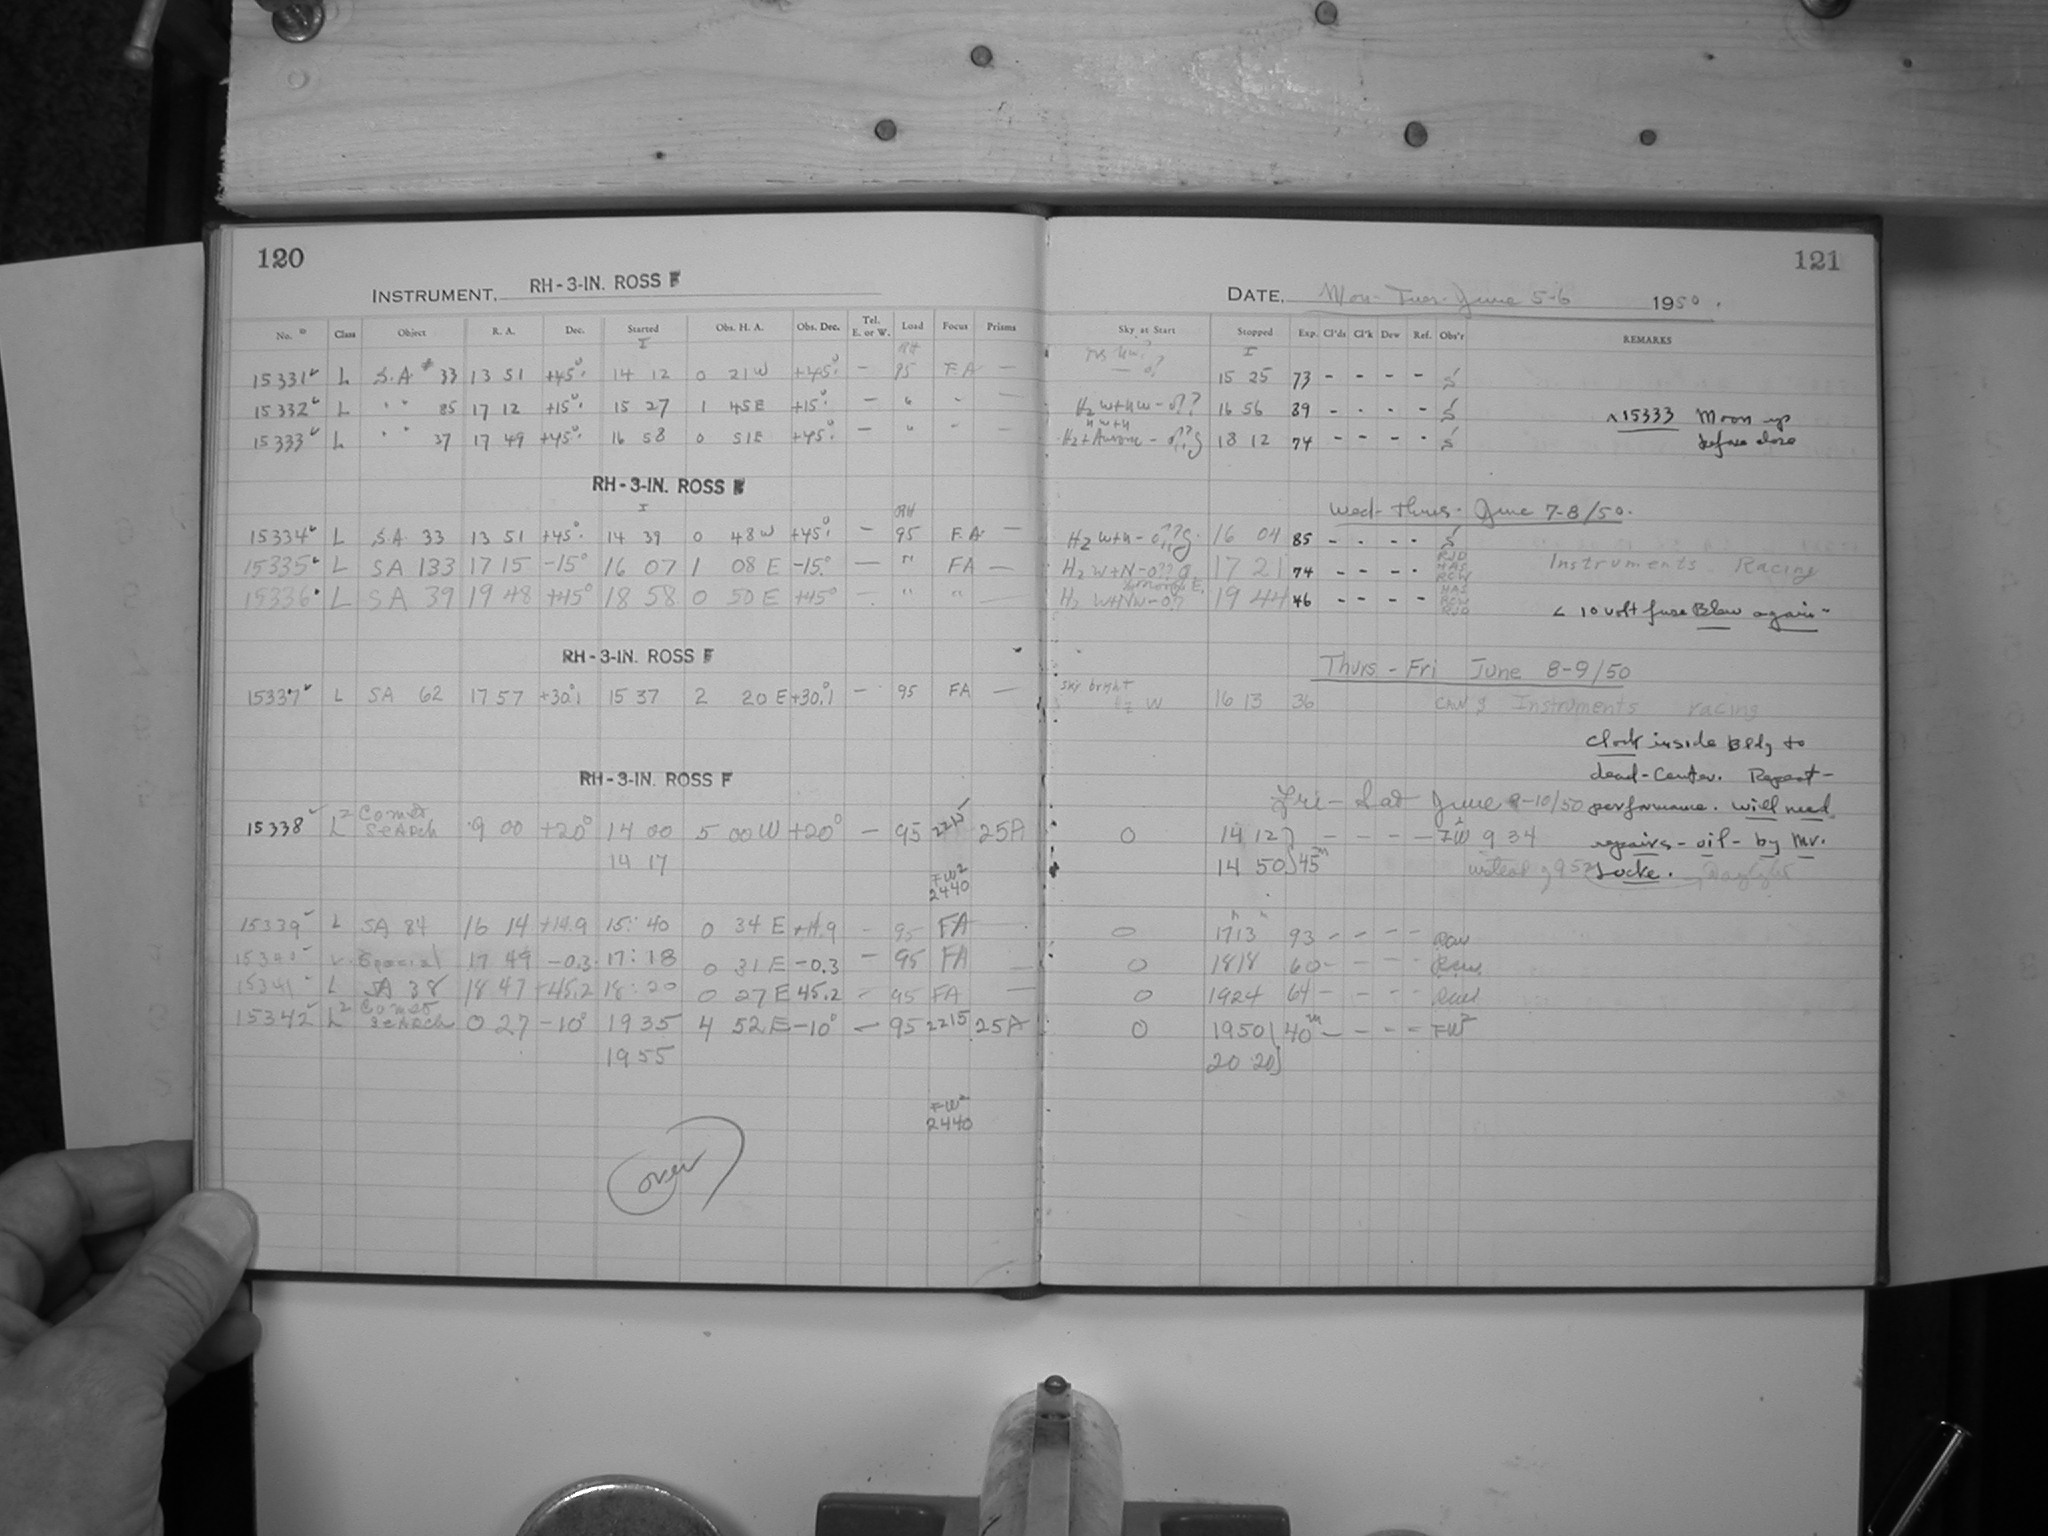 120
121
INSTRUMENT, RH-3-IN. ROSS F
DATE, Mon-Tues-June 5-6 1950.
No. Class Object R. A. Dec. Started Obs. H. A. Obs. Dec. Tel. E. or W. Load Focus Prisms Sky at Start Stopped Exp. Cl'ds Cl'k Dew Ref. Obs'r REMARKS
15331 L S.A # 33 13 51 +45° 14 12 0 21 W +45° — 95 F.A — 15 25 73 - - - -
15332 L " " 85 17 12 +15° 15 27 1 45 E +15° — " " H2 W+NW-0?? 16 56 89 - - - - 15333 Moon up
15333 L " 37 17 49 +45° 16 58 0 51 E +45° — " " 18 12 74 - - - - before close
RH-3-IN. ROSS F
Wed-Thurs- June 7-8/50.
15334 L S.A. 33 13 51 +45° 14 39 0 48 W +45° — 95 F.A. — 16 04 85 - - - -
15335 L SA 133 17 15 -15° 16 07 1 08 E -15° — " FA — 17 21 74 - - - - Instruments Racing
15336 L SA 39 19 48 +45° 18 58 0 50 E +45° — " " — 19 44 46 - - - - < 10 volt fuse Blew again-
RH-3-IN. ROSS F
Thurs-Fri June 8-9/50
15337 L SA 62 17 57 +30.1 15 37 2 20 E +30.1 — 95 FA — Sky bright W 16 13 36 Instruments racing
clock inside Bldg to
dead-Center. Repeat-
RH-3-IN. ROSS F
Fri-Sat June 9-10/50 performance. will need
15338 L2 Comet Search 9 00 +20° 14 00 5 00 W +20° — 95 2215 25A 0 14 12 - - - - FW2 9 34 repairs-oil-by Mr.
14 17 14 50 45m instead of 9 52 Locke. Daylight
FW2
2440
15339 L SA 84 16 14 +14.9 15:40 0 34 E +14.9 - 95 FA — 0 1713 93 - - - - RCW
15340 Special 17 49 -0.3 17:18 0 31 E -0.3 - 95 FA — 0 1818 60 - - - - RCW
15341 L SA 38 18 47 +45.2 18:20 0 27 E 45.2 - 95 FA — 0 1924 64 - - - - RCW
15342 L2 Comet Search 0 27 -10° 19 35 4 52 E -10° — 95 2215 25A 0 1950 40m - - - - FW2
19 55 20 20
FW2
2440
over